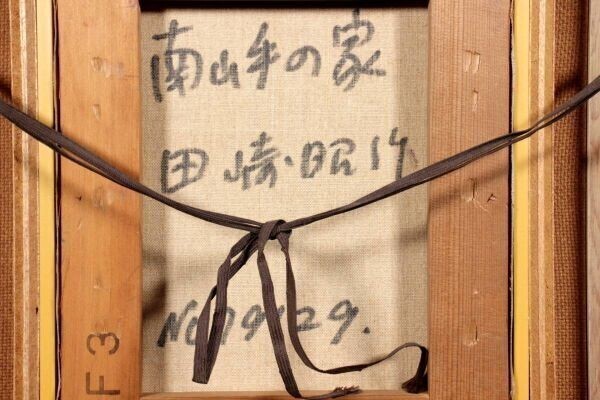 南山手の家
田崎昭作
No 79 29.
F3